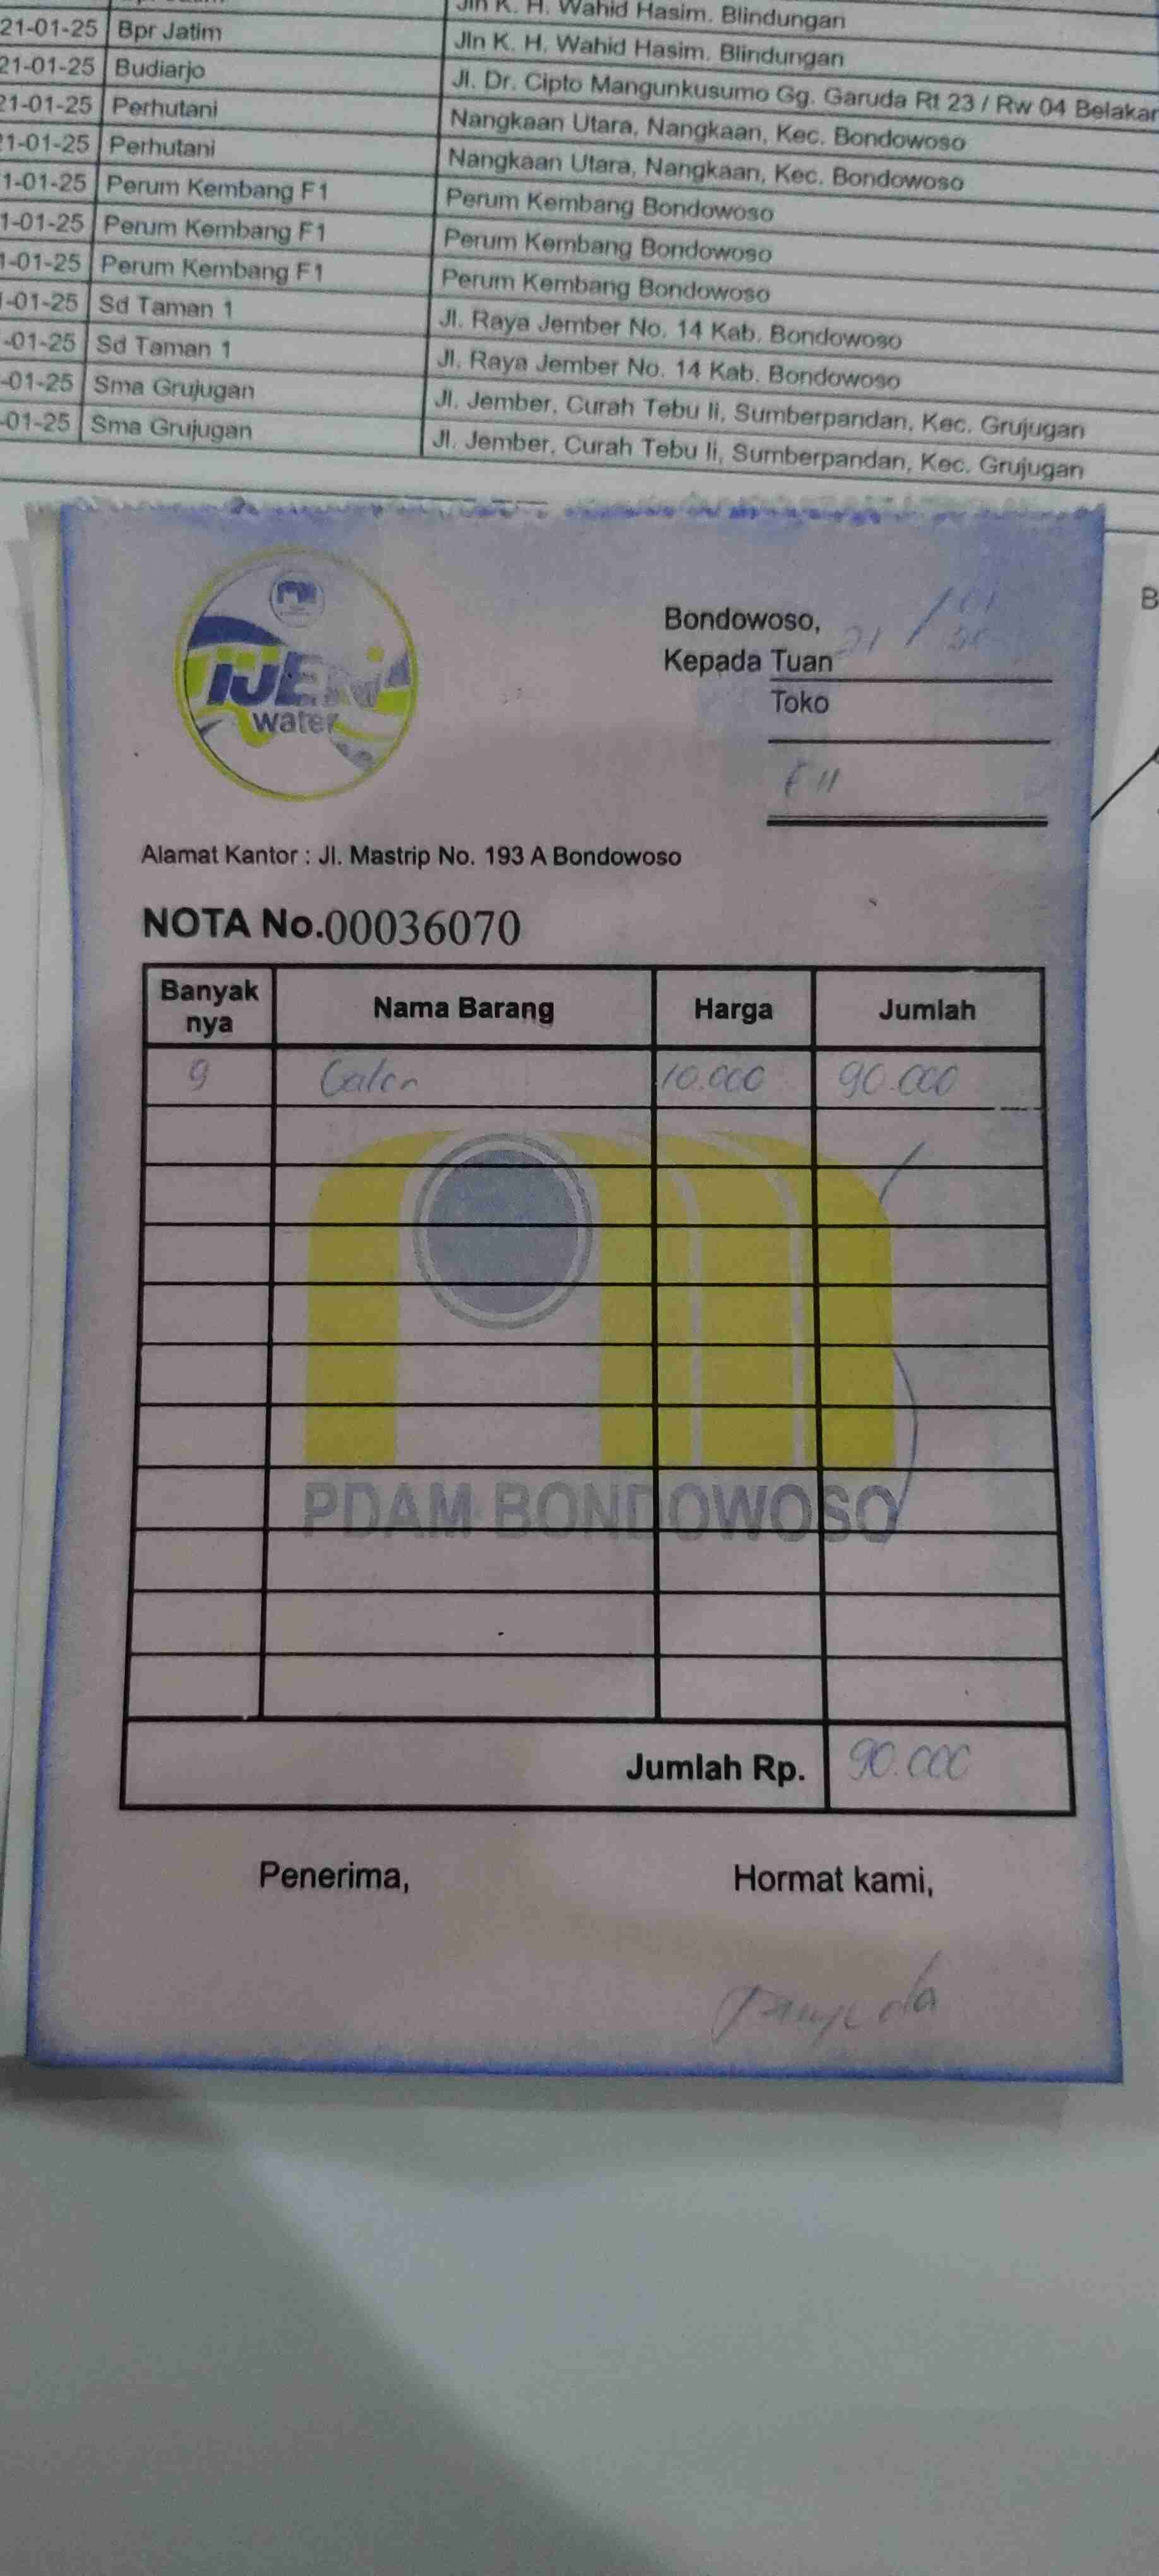 Jln K. H. Wahid Hasim. Blindungan
21-01-25 Bpr Jatim Jln K. H. Wahid Hasim. Blindungan
21-01-25 Budiarjo Jl. Dr. Cipto Mangunkusumo Gg. Garuda Rt 23 / Rw 04 Belakan
21-01-25 Perhutani Nangkaan Utara, Nangkaan, Kec. Bondowoso
21-01-25 Perhutani Nangkaan Utara, Nangkaan, Kec. Bondowoso
1-01-25 Perum Kembang F1 Perum Kembang Bondowoso
1-01-25 Perum Kembang F1 Perum Kembang Bondowoso
1-01-25 Perum Kembang F1 Perum Kembang Bondowoso
-01-25 Sd Taman 1 Jl. Raya Jember No. 14 Kab. Bondowoso
-01-25 Sd Taman 1 Jl. Raya Jember No. 14 Kab. Bondowoso
-01-25 Sma Grujugan Jl. Jember, Curah Tebu Ii, Sumberpandan, Kec. Grujugan
-01-25 Sma Grujugan Jl. Jember, Curah Tebu Ii, Sumberpandan, Kec. Grujugan
B
IJEN
water
Bondowoso, 21/01
Kepada Tuan
Toko
Alamat Kantor : Jl. Mastrip No. 193 A Bondowoso
NOTA No.00036070
Banyak nya Nama Barang Harga Jumlah
9 Galon 10.000 90.000
PDAM BONDOWOSO
Jumlah Rp. 90.000
Penerima, Hormat kami,